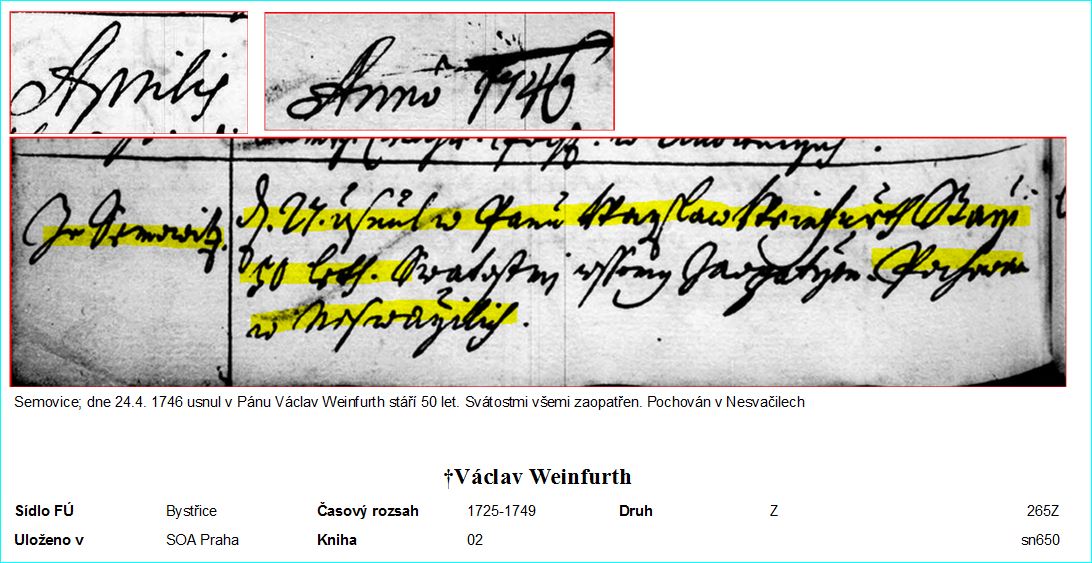 Aprilis
Anno 1746
Ze Semowitz.
d. 24. usnul w Panu Waczlaw Weinfurth Starzi
50 leth. Swatostmi wssemy Zaopatrzen. Pochowan
w Neswaczilich.
Semovice; dne 24.4. 1746 usnul v Pánu Václav Weinfurth stáří 50 let. Svátostmi všemi zaopatřen. Pochován v Nesvačilech
†Václav Weinfurth
Sídlo FÚ Bystřice Časový rozsah 1725-1749 Druh Z 265Z
Uloženo v SOA Praha Kniha 02 sn650